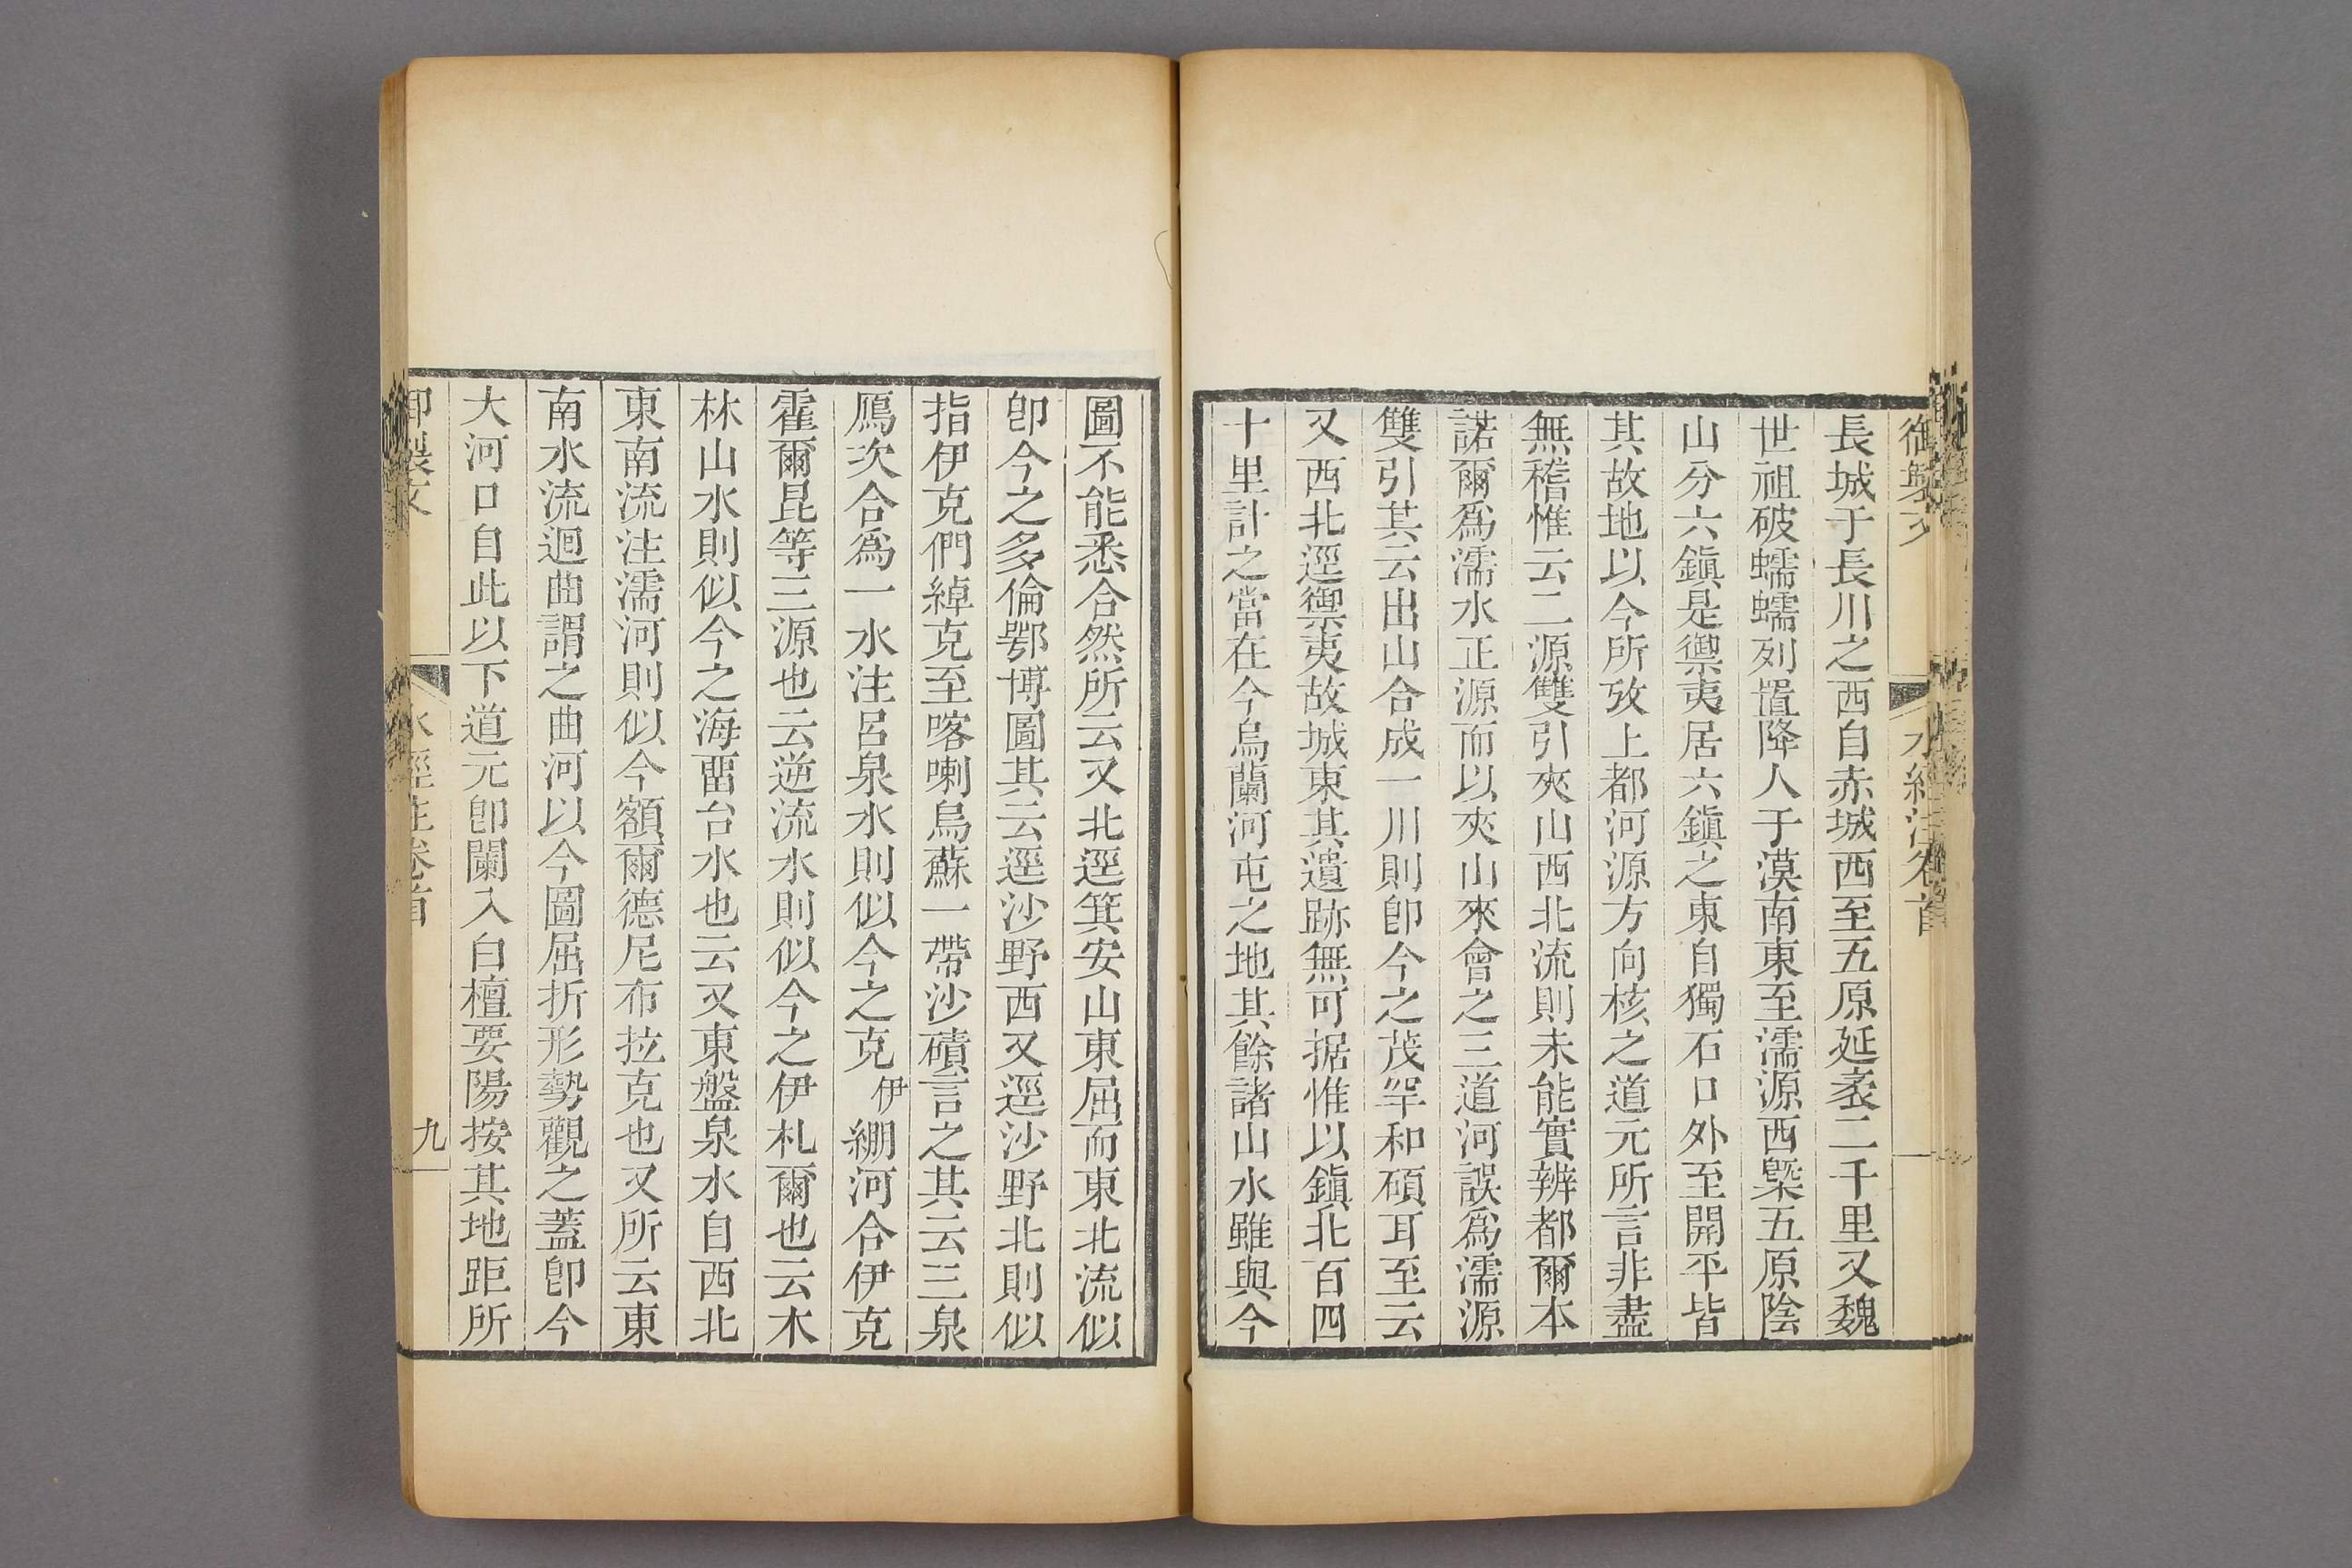 御製文
水經注卷首
長城于長川之西自赤城西至五原延袤二千里又魏
世祖破蠕蠕列置降人于漠南東至濡源西曁五原陰
山分六鎭是禦夷居六鎭之東自獨石口外至開平皆
其故地以今所攷上都河源方向核之道元所言非盡
無稽惟云二源雙引夾山西北流則未能實辨都爾本
諾爾爲濡水正源而以夾山來會之三道河誤爲濡源
雙引其云出山合成一川則卽今之茂罕和碩耳至云
又西北逕禦夷故城東其遺跡無可据惟以鎭北百四
十里計之當在今烏蘭河屯之地其餘諸山水雖與今
圖不能悉合然所云又北逕箕安山東屈而東北流似
卽今之多倫鄂博圖其云逕沙野西又逕沙野北則似
指伊克們綽克至喀喇烏蘇一帶沙磧言之其云三泉
鴈次合爲一水注呂泉水則似今之克伊綳河合伊克
霍爾昆等三源也云逆流水則似今之伊札爾也云木
林山水則似今之海畱台水也云又東盤泉水自西北
東南流注濡河則似今額爾德尼布拉克也又所云東
南水流迴曲謂之曲河以今圖屈折形勢觀之蓋卽今
大河口自此以下道元卽闌入白檀要陽按其地距所
御製文
水經注卷首
九